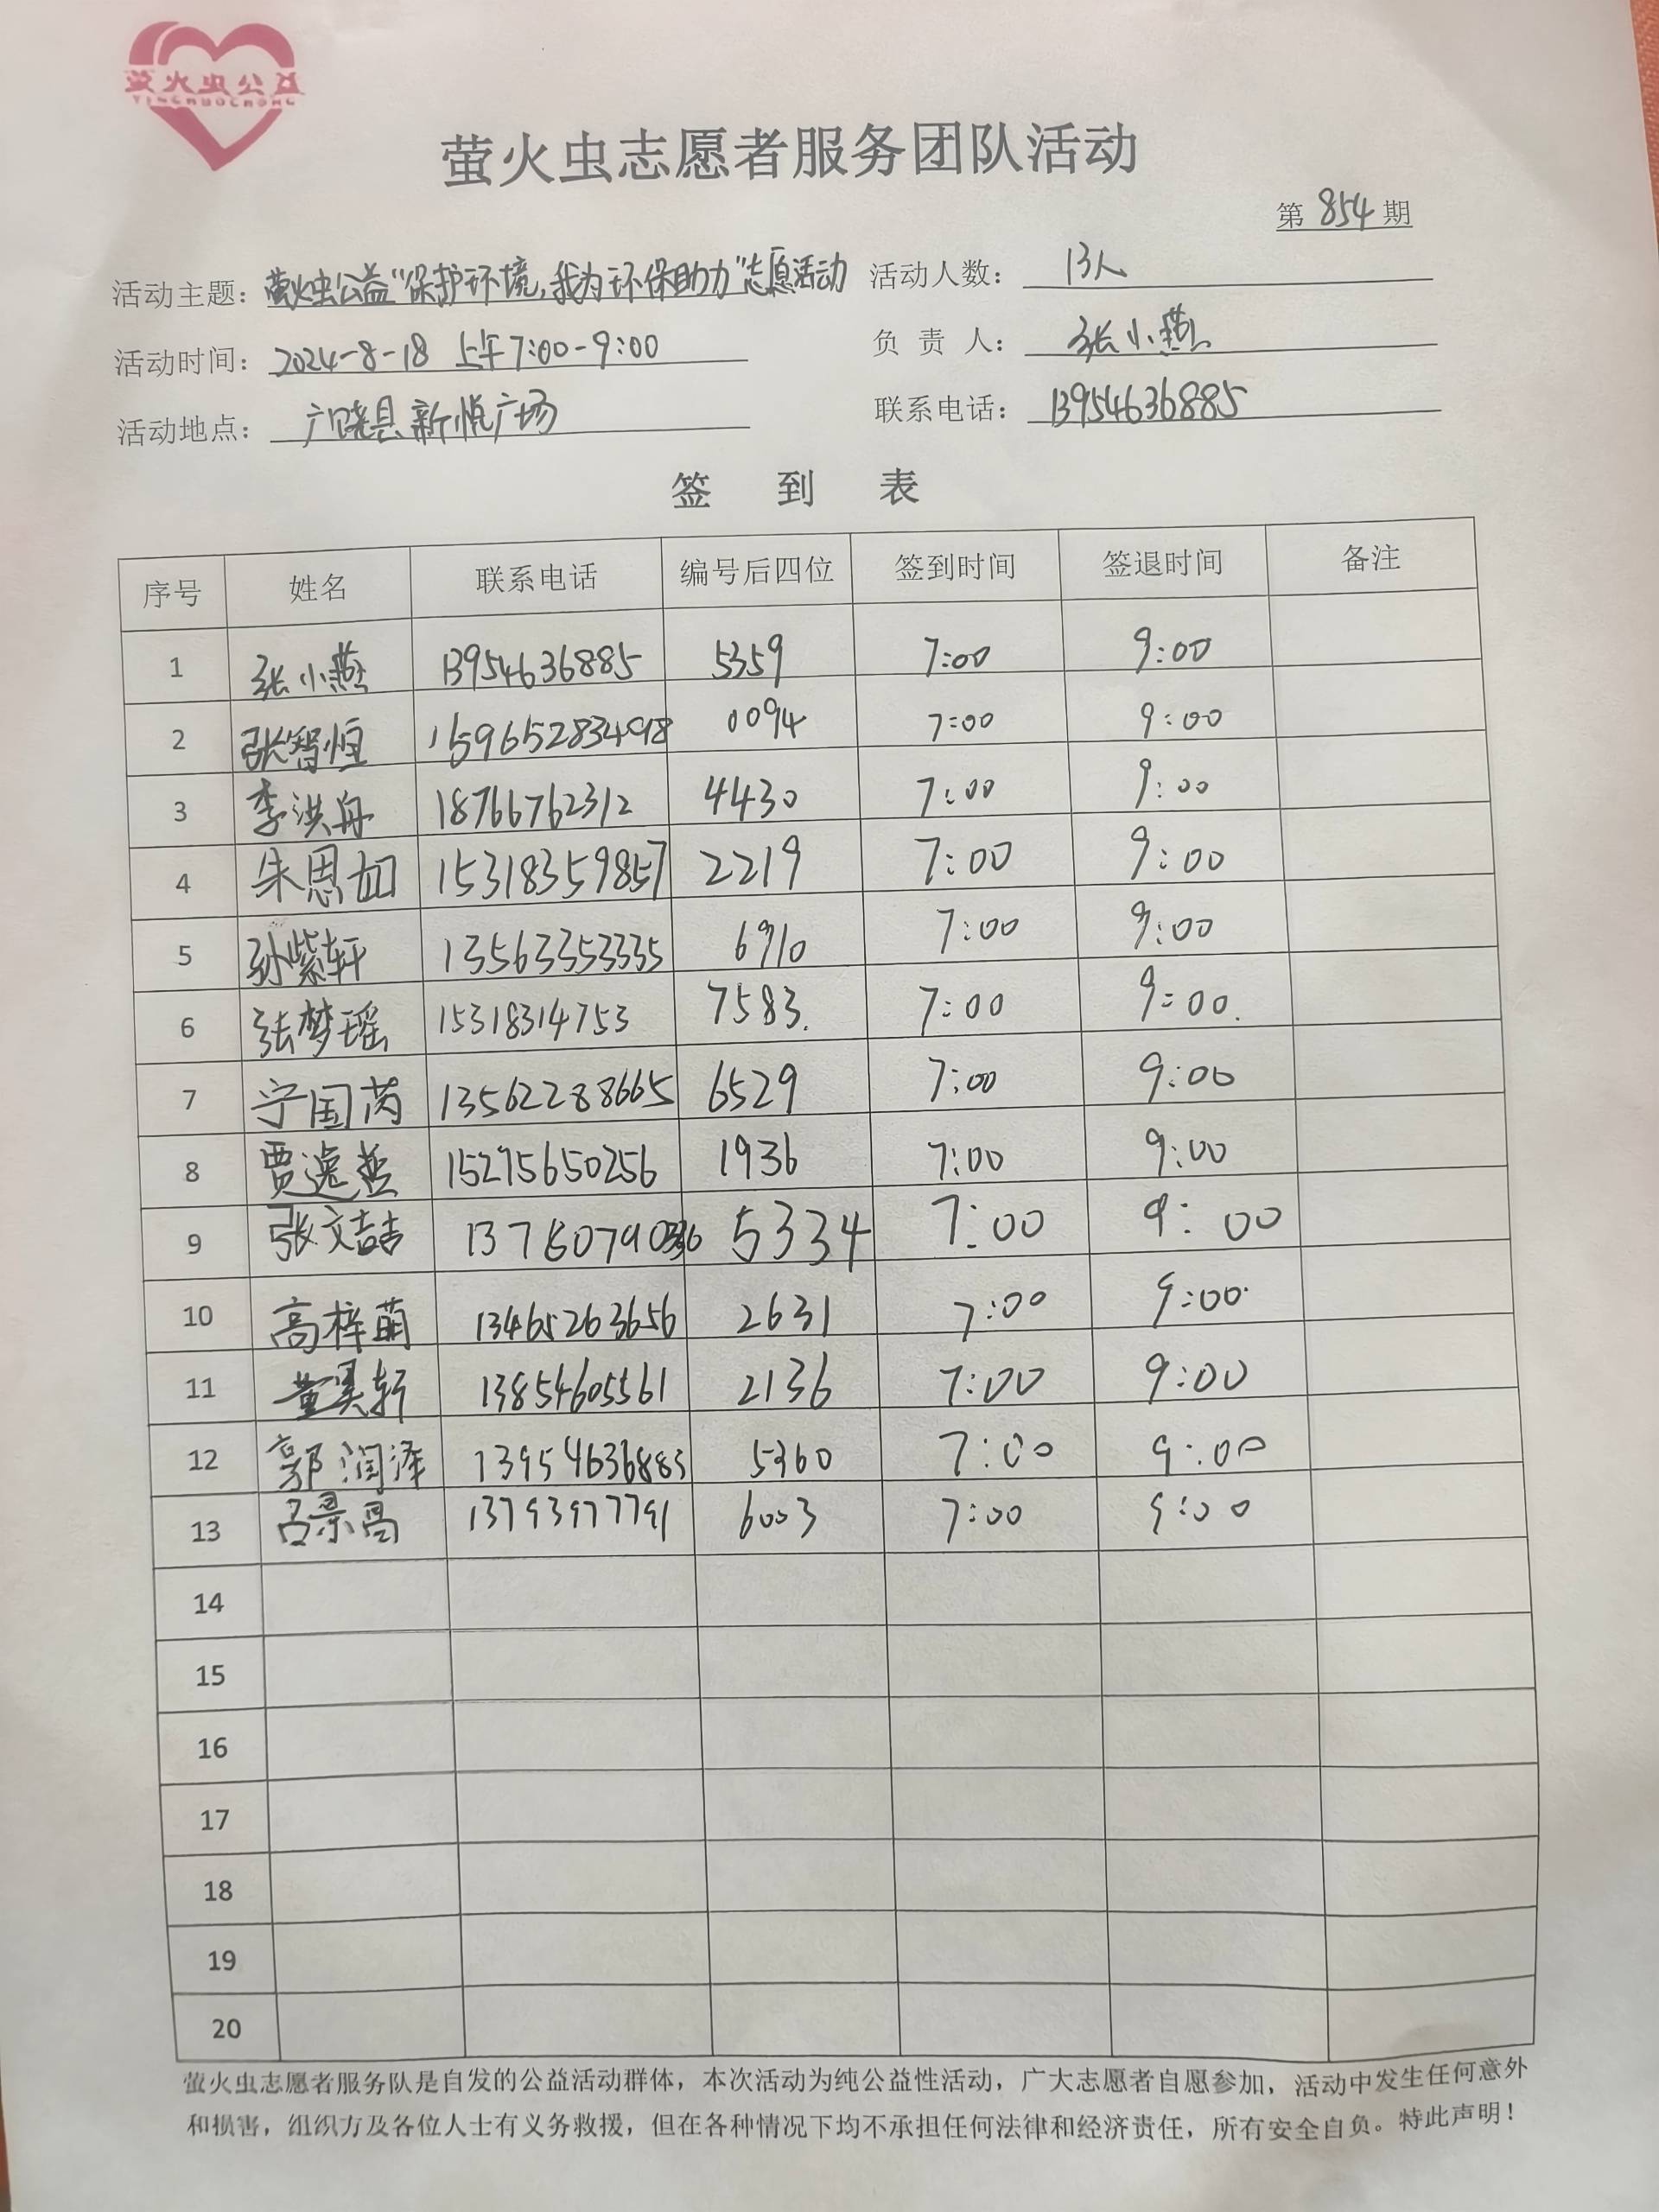 萤火虫公益
YINGHUOCHONG
萤火虫志愿者服务团队活动
第 854 期
活动主题：萤火虫公益“保护环境，我为环保助力”志愿活动 活动人数： 13人
活动时间：2024-8-18 上午7:00-9:00 负 责 人： 张小燕
活动地点： 广饶县新悦广场 联系电话： 13954636885
签 到 表
序号 姓名 联系电话 编号后四位 签到时间 签退时间 备注
1 张小燕 13954636885 5359 7:00 9:00
2 张智恒 0094 7:00 9:00
3 李洪舟 18766762312 4430 7:00 9:00
4 朱思如 15318359857 2219 7:00 9:00
5 孙紫轩 13563353335 6910 7:00 9:00
6 张梦瑶 15318314753 7583. 7:00 9:00.
7 宁国芮 13562288665 6529 7:00 9:00
8 贾逸哲 15275650256 1936 7:00 9:00
9 张文喆 5334 7:00 9:00
10 高梓萌 13465263656 2631 7:00 9:00
11 董昊轩 13854605561 2136 7:00 9:00
12 郭润泽 13954636883 5360 7:00 9:00
13 吕景昌 13793977791 6003 7:00 9:00
14
15
16
17
18
19
20
萤火虫志愿者服务队是自发的公益活动群体，本次活动为纯公益性活动，广大志愿者自愿参加，活动中发生任何意外
和损害，组织方及各位人士有义务救援，但在各种情况下均不承担任何法律和经济责任，所有安全自负。特此声明！